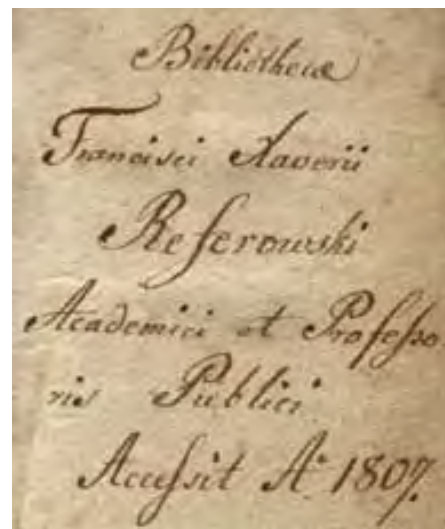 Bibliothecæ
Francisci Xaverii
Referowski
Academici et Professo-
ris Publici
Accessit Aº 1807.